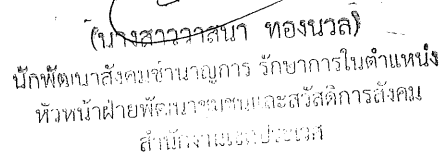 (นางสาววาสนา ทองนวล)
นักพัฒนาสังคมชำนาญการ รักษาการในตำแหน่ง
หัวหน้าฝ่ายพัฒนาชุมชนและสวัสดิการสังคม
สำนักงานเขตประเวศ